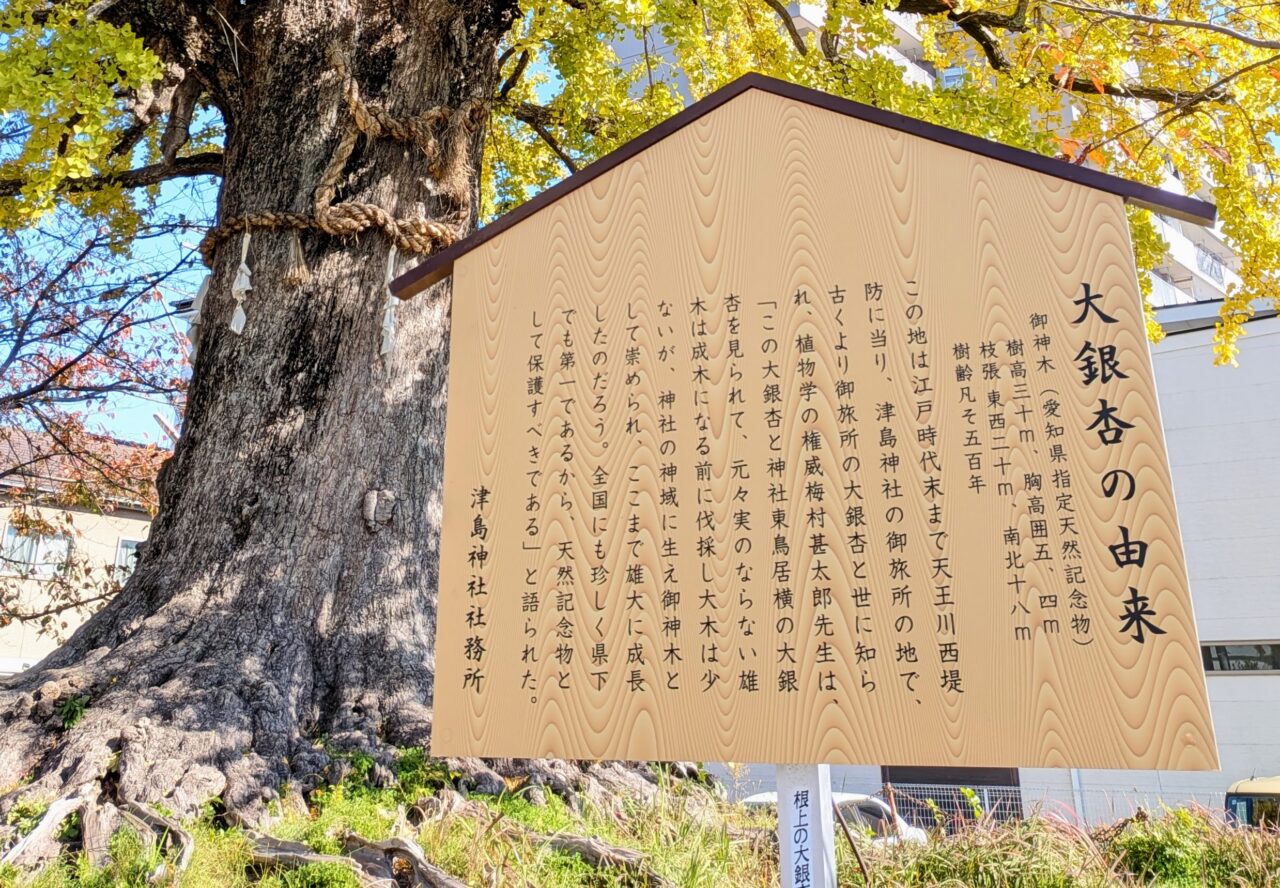 大銀杏の由来
御神木（愛知県指定天然記念物）
樹高三十ｍ、胸高囲五、四ｍ
枝張東西二十ｍ、南北十八ｍ
樹齢凡そ五百年
この地は江戸時代末まで天王川西堤
防に当り、津島神社の御旅所の地で、
古くより御旅所の大銀杏と世に知ら
れ、植物学の権威梅村甚太郎先生は、
「この大銀杏と神社東鳥居横の大銀
杏を見られて、元々実のならない雄
木は成木になる前に伐採し大木は少
ないが、神社の神域に生え御神木と
して崇められ、ここまで雄大に成長
したのだろう。全国にも珍しく県下
でも第一であるから、天然記念物と
して保護すべきである」と語られた。
津島神社社務所
根上の大銀